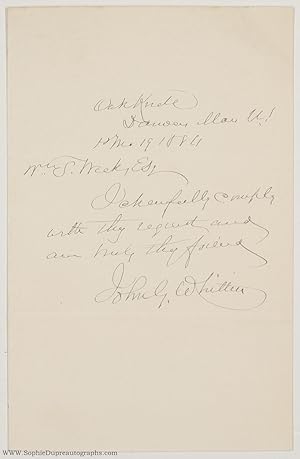 Oak Knoll
Danvers Mass U.S
1st Mo 19 1884
Wm S. Weeks, Esq
I cheerfully comply
with thy request and
am truly thy friend
John G. Whittier
www.SophieDupreautographs.com